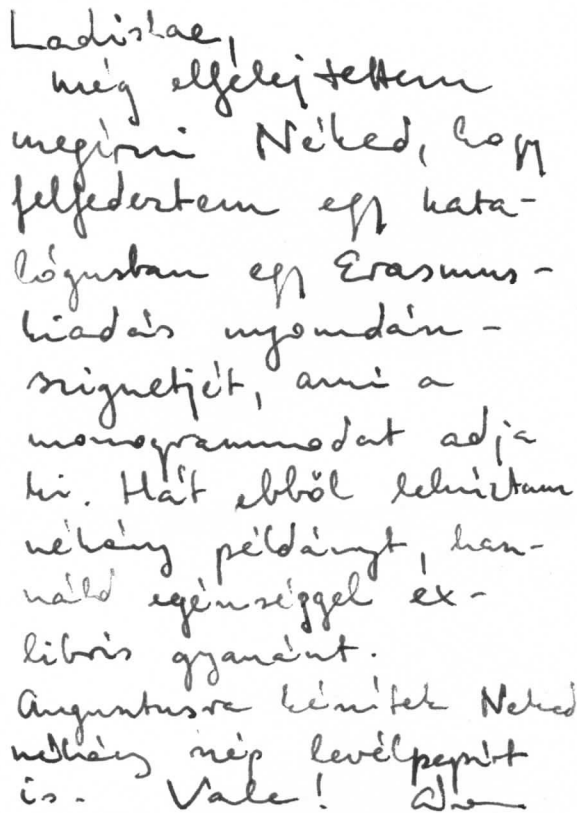 Ladislae,
még elfelejtettem
megírni Néked, hogy
felfedeztem egy kata-
lógusban egy Erasmus-
kiadás nyomdász-
szignetjét, ami a
monogrammodat adja
ki. Hát ebből lehúztam
néhány példányt, hasz-
náld egészséggel ex-
libris gyanánt.
Augusztusra készítek Neked
néhány szép levélpapírt
is. Vale!